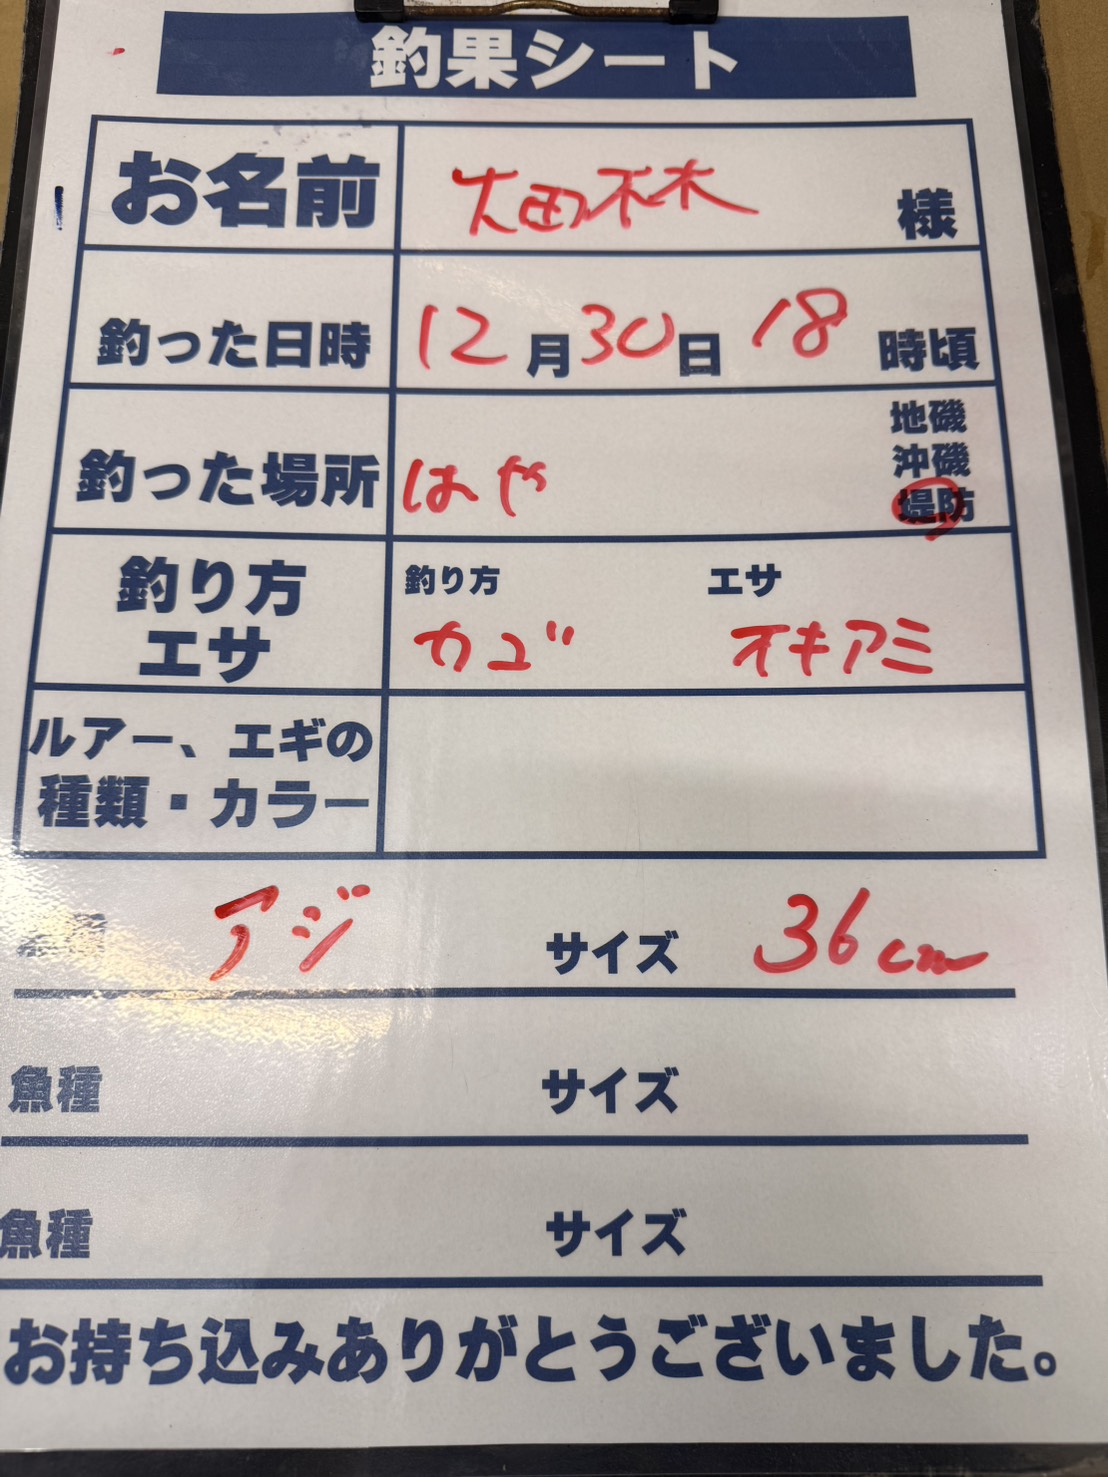 釣果シート
お名前 大田 様
釣った日時 12月30日 18時頃
釣った場所 はや 地磯
沖磯
堤防
釣り方 エサ
釣り方
エサ
カゴ オキアミ
ルアー、エギの
種類・カラー
アジ サイズ 36cm
魚種 サイズ
魚種 サイズ
お持ち込みありがとうございました。